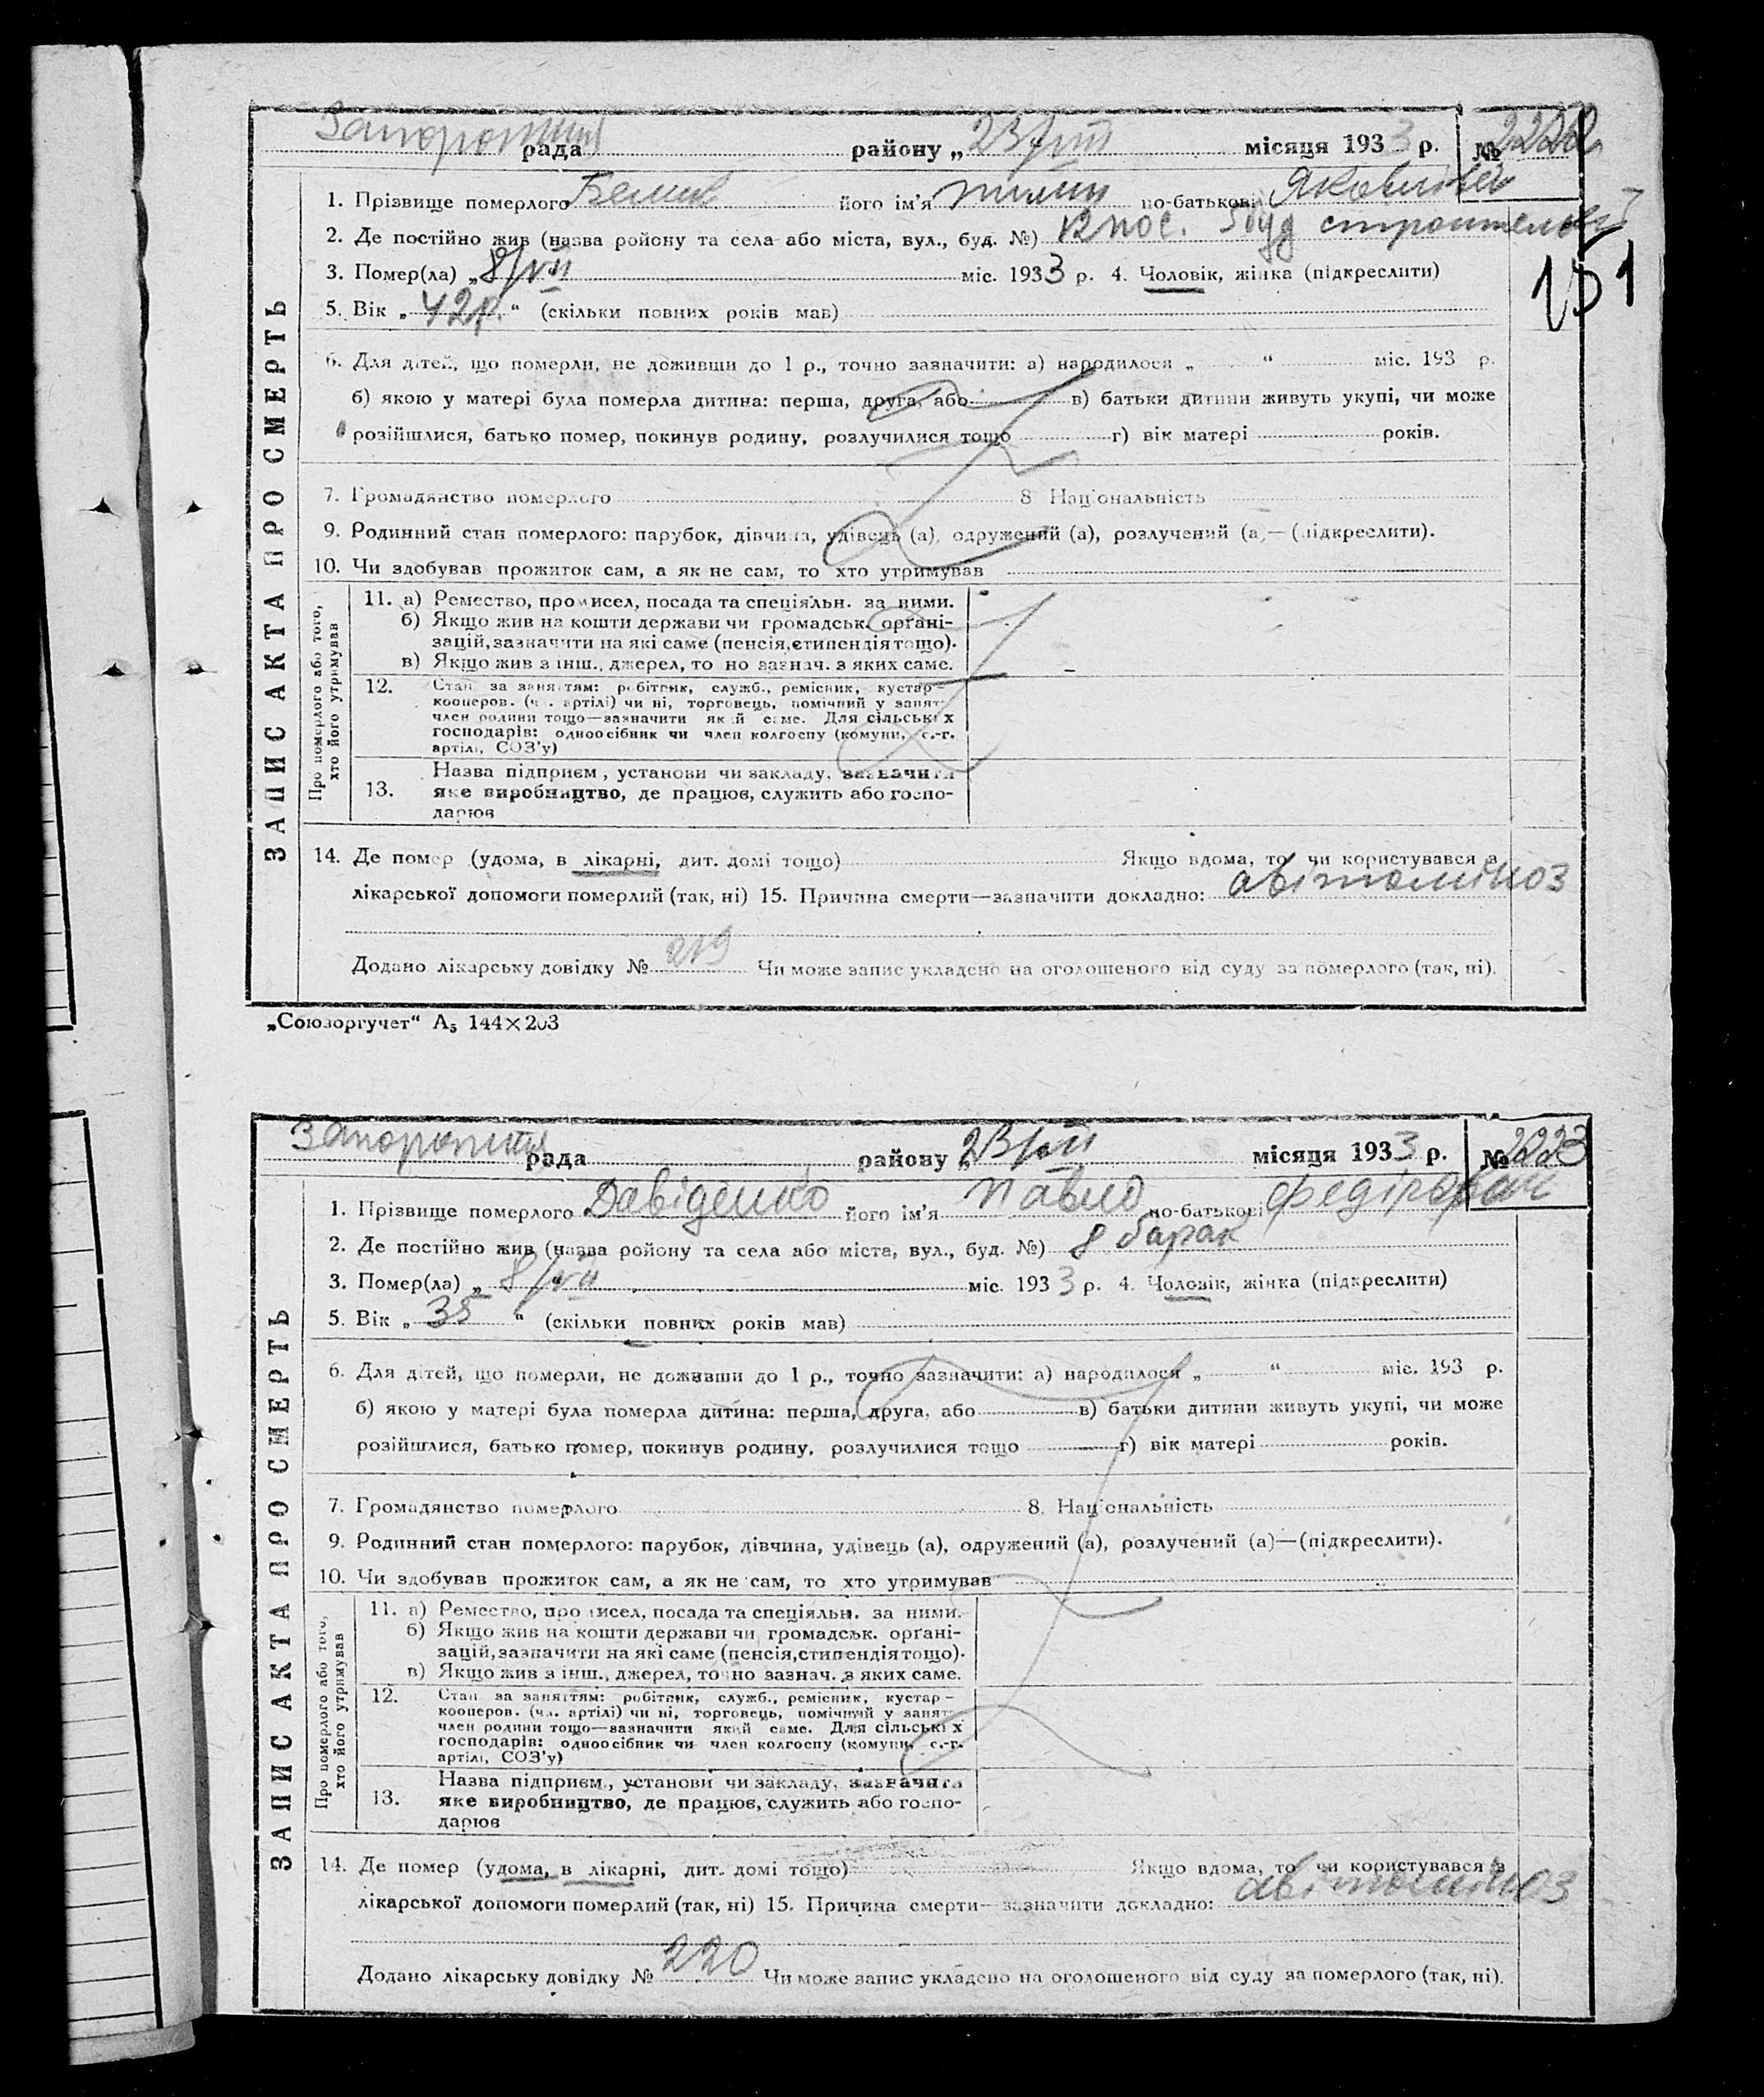 Запоріжжя рада району „23/VII місяця 1933 р. № 2222
1. Прізвище померлого його ім'я по-батькові Якович
2. Де постійно жив (назва ройону та села або міста, вул., буд. №) 12 пос. 5 буд
3. Помер(ла) „8/VII міс. 1933 р. 4. Чоловік, жінка (підкреслити)
151
5. Вік „42р.“ (скільки повних років мав)
6. Для дітей, що померли, не доживши до 1 р., точно зазначити: а) народилося „ “ міс. 193 р.
б) якою у матері була померла дитина: перша, друга, або в) батьки дитини живуть укупі, чи може
розійшлися, батько помер, покинув родину, розлучилися тощо г) вік матері років.
7. Громадянство померлого 8 Національність
9. Родинний стан померлого: парубок, дівчина, удівець (а), одружений (а), розлучений (а)—(підкреслити).
10. Чи здобував прожиток сам, а як не сам, то хто утримував
ЗАПИС АКТА ПРО СМЕРТЬ
Про померлого або того,
хто його утримував
11. а) Ремество, промисел, посада та спеціяльн. за ними.
б) Якщо жив на кошти держави чи громадськ. орґані-
зацій, зазначити на які саме (пенсія, стипендія тощо).
в) Якщо жив з інш., джерел, точно зазнач. з яких саме.
12. Стан за заняттям: робітник, служб., ремісник, кустар—
кооперов. (чл. артілі) чи ні, торговець, помічний у занят.
член родини тощо—зазначити який саме. Для сільських
господарів: одноосібник чи член колгоспу (комуни, с.-г.
артілі, СОЗ'у)
13. Назва підприєм., установи чи закладу, зазначити
яке виробництво, де працює, служить або госпо-
дарює
14. Де помер (удома, в лікарні, дит. домі тощо) Якщо вдома, то чи користувався з
лікарської допомоги померлий (так, ні) 15. Причина смерти—зазначити докладно: авітоміноз
Додано лікарську довідку № 219 Чи може запис укладено на оголошеного від суду за померлого (так, ні).
„Союзоргучет“ А5 144×203
Запоріжжя рада району „23/VII місяця 1933 р. № 2223
1. Прізвище померлого Давіденко його ім'я Павло по-батькові
2. Де постійно жив (назва ройону та села або міста, вул., буд. №) 8 барак
3. Помер(ла) „8/VII міс. 1933 р. 4. Чоловік, жінка (підкреслити)
5. Вік „35“ (скільки повних років мав)
6. Для дітей, що померли, не доживши до 1 р., точно зазначити: а) народилося „ “ міс. 193 р.
б) якою у матері була померла дитина: перша, друга, або в) батьки дитини живуть укупі, чи може
розійшлися, батько помер, покинув родину, розлучилися тощо г) вік матері років.
7. Громадянство померлого 8. Національність
9. Родинний стан померлого: парубок, дівчина, удівець (а), одружений (а), розлучений (а)—(підкреслити).
10. Чи здобував прожиток сам, а як не сам, то хто утримував
ЗАПИС АКТА ПРО СМЕРТЬ
Про померлого або того,
хто його утримував
11. а) Ремество, промисел, посада та спеціяльн. за ними.
б) Якщо жив на кошти держави чи громадськ. орґані-
зацій, зазначити на які саме (пенсія, стипендія тощо).
в) Якщо жив з інш., джерел, точно зазнач. з яких саме.
12. Стан за заняттям: робітник, служб., ремісник, кустар—
кооперов. (чл. артілі) чи ні, торговець, помічний у занят.
член родини тощо—зазначити який саме. Для сільських
господарів: одноосібник чи член колгоспу (комуни, с.-г.
артілі, СОЗ'у)
13. Назва підприєм., установи чи закладу, зазначити
яке виробництво, де працює, служить або госпо-
дарює
14. Де помер (удома, в лікарні, дит. домі тощо) Якщо вдома, то чи користувався з
лікарської допомоги померлий (так, ні) 15. Причина смерти—зазначити докладно: авітоміноз
Додано лікарську довідку № 220 Чи може запис укладено на оголошеного від суду за померлого (так, ні).